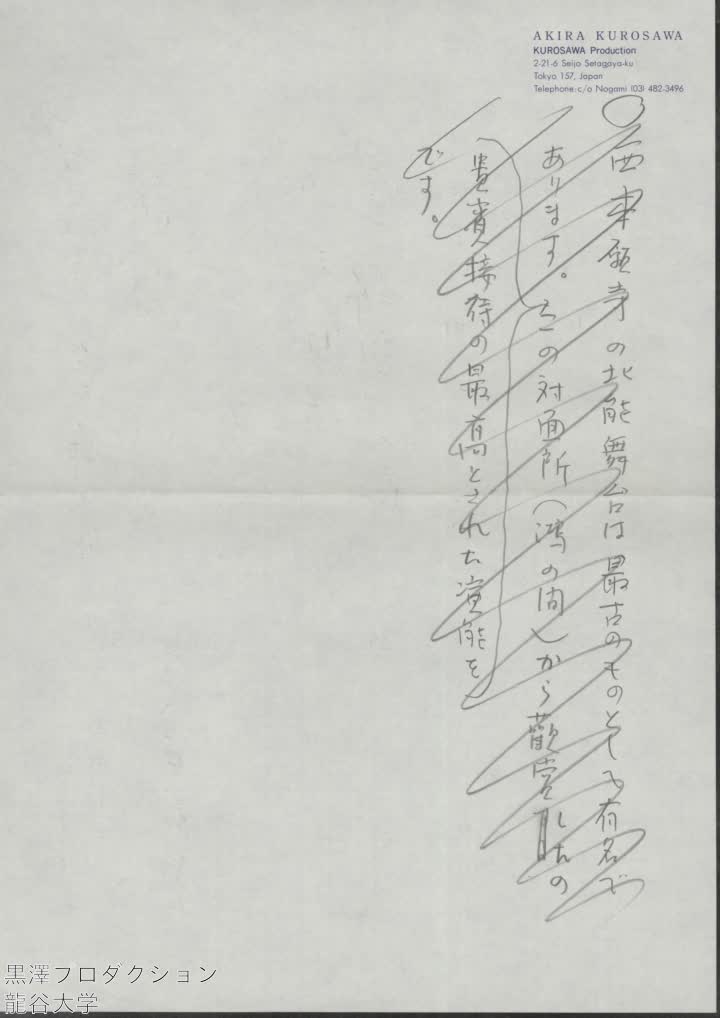 AKIRA KUROSAWA
KUROSAWA Production
2-21-6 Seijo Setagaya-ku
Tokyo 157, Japan
Telephone: c/o Nogami (03) 482-3496
○西本願寺の北能舞台は最古のものとして有名で
あります。この対面所(鴻の間)から歡賞したの
貴賓接待の最高とされた演能を
です。
黒澤フロダクション
龍谷大学